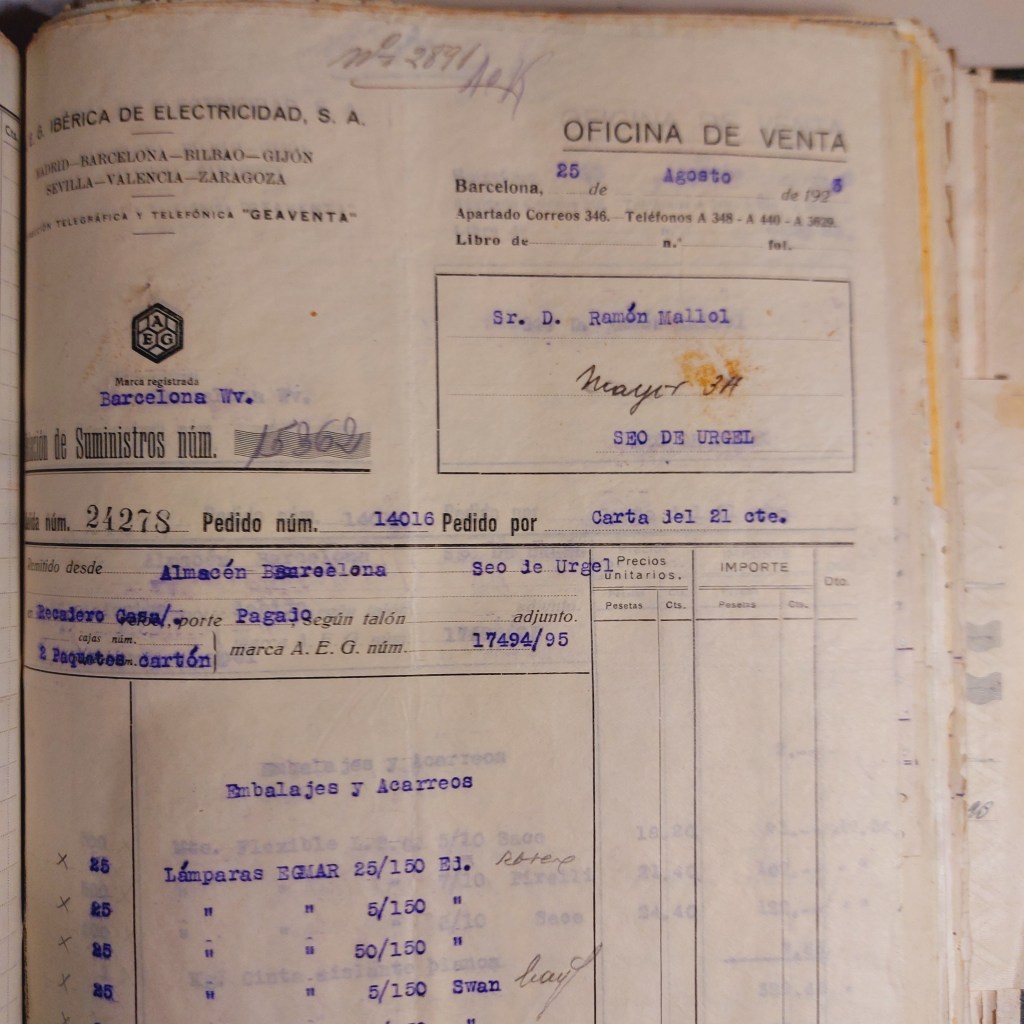 nº 2891
G. IBÉRICA DE ELECTRICIDAD, S. A.
MADRID—BARCELONA—BILBAO—GIJÓN
SEVILLA—VALENCIA—ZARAGOZA
TELEGRÁFICA Y TELEFÓNICA "GEAVENTA"
OFICINA DE VENTA
Barcelona, 25 de Agosto de 1923
Apartado Correos 346. Teléfonos A 348 - A 440 - A 3629.
Libro de n.º fol.
AEG
Marca registrada
Barcelona Wv.
de Suministros núm. 15362
Sr. D. Ramón Mallol
Mayor 34
SEO DE URGEL
núm. 24278 Pedido núm. 14016 Pedido por Carta del 21 cte.
Remitido desde Almacén Barcelona Seo de Urgel
Recadero Casa/. porte Pagado según talón adjunto.
cajas núm.
2 Paquetes cartón marca A. E. G. núm. 17494/95
Precios unitarios. IMPORTE Dto.
Pesetas Cts. Pesetas Cts.
Embalajes y Acarreos
x 25 Lámparas EGMAR 25/150 Ed.
x 25 " " 5/150 "
x 25 " " 50/150 "
x 25 " " 5/150 Swan